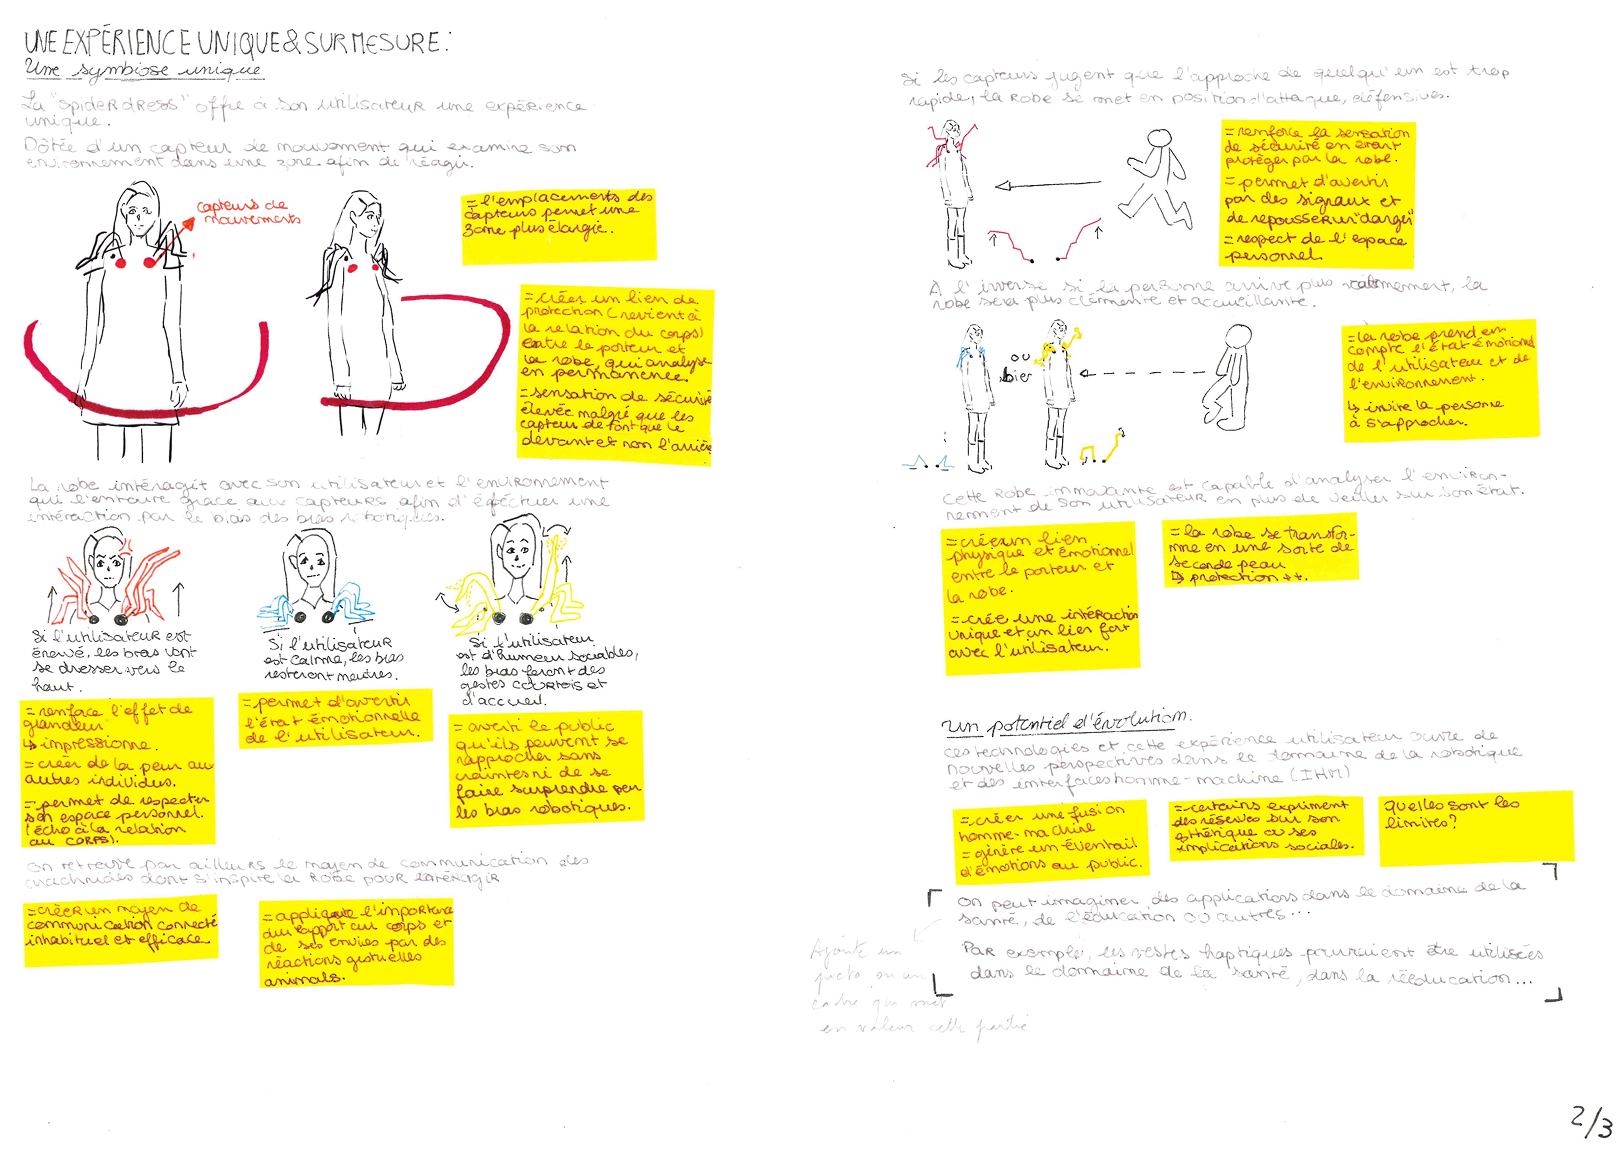 UNE EXPÉRIENCE UNIQUE & SUR MESURE :
Une symbiose unique
La "SPIDER DRESS" offre à son utilisateur une expérience
unique.
Dôtée d'un capteur de mouvement qui examine son
environnement dans une zone afin de réagir.
capteurs de
mouvements
= l'emplacements des
capteurs permet une
zone plus élargie.
= créer un lien de
protection (revient à
la relation du corps)
entre le porteur et
la robe, qui analyse
en permanence.
= sensation de sécurité
élevée malgré que les
capteur de font que le
devant et non l'arrière
La robe intéragit avec son utilisateur et l'environnement
qui l'entoure grace aux capteurs afin d'éfféctuer une
intéraction par le biais des bras robotiques.
Si l'utilisateur est
énervé, les bras vont
se dresser vers le
haut.
Si l'utilisateur
est calme, les bras
resteront neutres.
Si l'utilisateur
est d'humeur sociables,
les bras feront des
gestes courtois et
d'accueil.
= renforce l'effet de
grandeur
↳ impressionne.
= créer de la peur aux
autres individus.
= permet de respecter
son espace personnel.
(écho à la relation
au CORPS).
= permet d'avertir
l'état émotionnelle
de l'utilisateur.
= averti le public
qu'ils peuvent se
rapprocher sans
craintes ni de se
faire surprendre par
les bras robotiques.
On retrouve par ailleurs le moyen de communication des
arachnides dont s'inspire la Robe pour intéragir
= créer un moyen de
communication connecté
inhabituel et efficace.
= applique l'importance
du rapport au corps et
de ses envies par des
réactions gestuelles
animals.
Si les capteurs jugent que l'approche de quelqu'un est trop
rapide, la Robe se met en position d'attaque, défensives.
= renforce la sensation
de sécurité en étant
protéger par la robe.
= permet d'avertir
par des signaux et
de repousser un "danger"
= respect de l'espace
personnel.
A l'inverse si la personne arrive plus calmement, la
robe sera plus clémente et accueillante.
ou
bien
= la robe prend en
compte l'état émotionnel
de l'utilisateur et de
l'environnement.
↳ invite la personne
à s'approcher.
Cette Robe innovante est capable d'analyser l'environ-
nement de son utilisateur en plus de veiller sur son état.
= crée un lien
physique et émotionnel
entre le porteur et
la robe.
= crée une intéraction
unique et un lien fort
avec l'utilisateur.
= la robe se transfor-
me en une sorte de
seconde peau
↳ protection ++.
Un potentiel d'évolution.
ces technologies et cette expérience utilisateur ouvre de
nouvelles perspectives dans le domaine de la robotique
et des interfaces homme-machine (IHM)
= créer une fusion
homme-machine
= génère un éventail
d'émotions au public.
= certains expriment
des réserves sur son
éthérique ou ses
implications sociales.
quelles sont les
limites?
On peut imaginer des applications dans le domaine de la
santé, de l'éducation ou autres...
Par exemple, les vestes haptiques pourraient être utilisées
dans le domaine de la santé, dans la rééducation...
Ajouté un
picto ou un
cadre qui met
en valeur cette partie
2/3